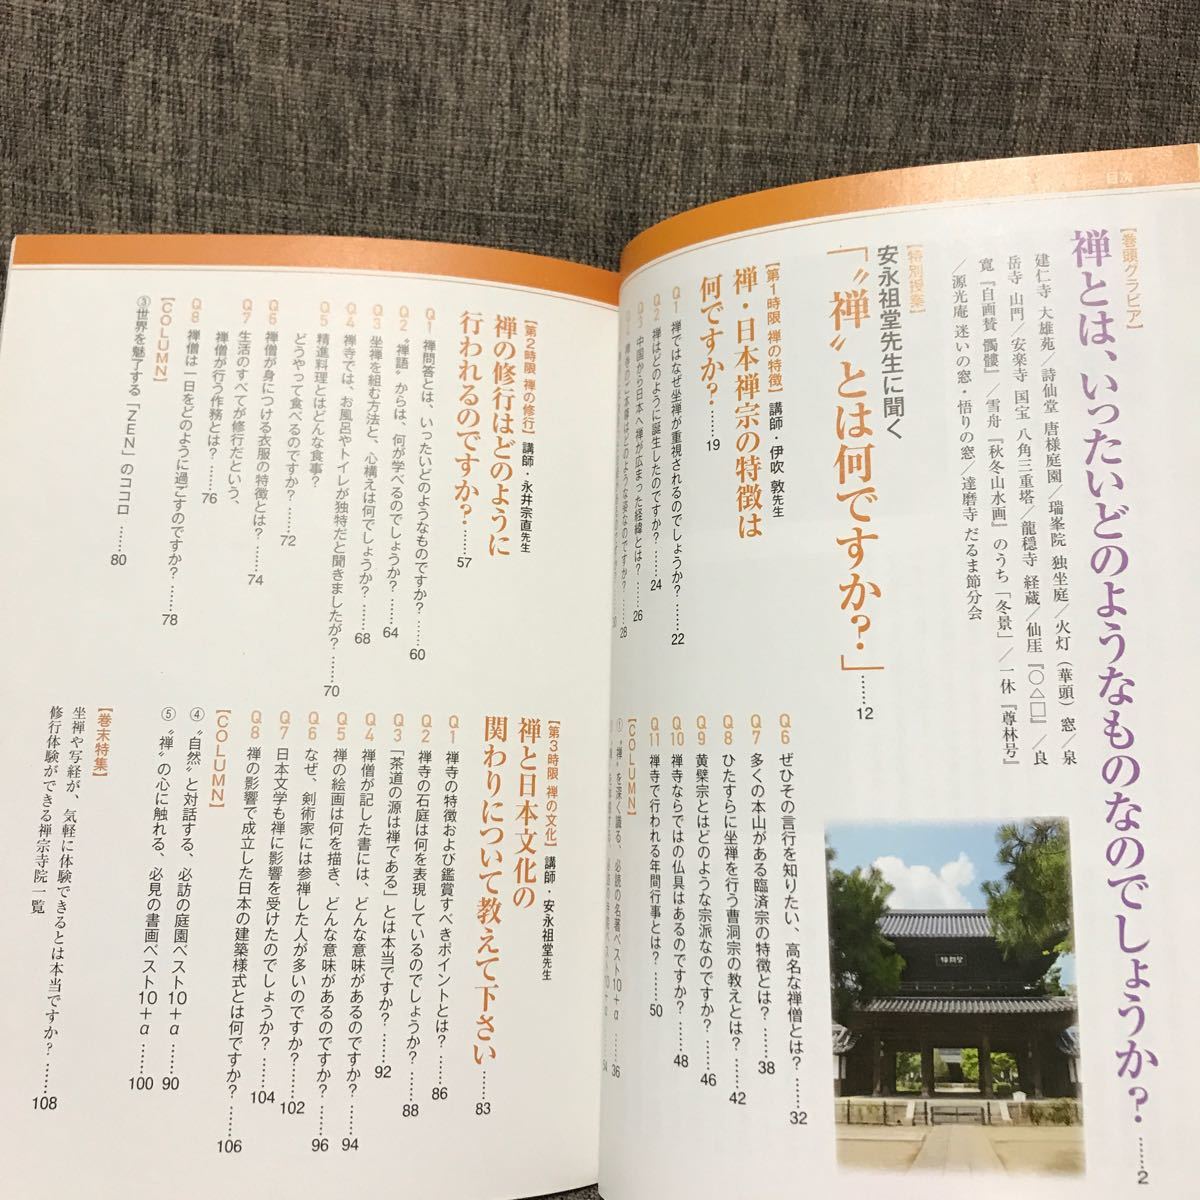 目次
【巻頭グラビア】
禅とは、いったいどのようなものなのでしょうか？……2
建仁寺 大雄苑／詩仙堂 唐様庭園／瑞峯院 独坐庭／火灯（華頭）窓／泉
岳寺 山門／安楽寺 国宝 八角三重塔／龍穏寺 経蔵／仙厓『○△□』／良
寛『自画賛 髑髏』／雪舟『秋冬山水画』のうち「冬景」／一休『尊林号』
／源光庵 迷いの窓・悟りの窓／達磨寺 だるま節分会
【特別授業】
安永祖堂先生に聞く
「〝禅〟とは何ですか？」……12
【第1時限 禅の特徴】講師・伊吹 敦先生
禅・日本禅宗の特徴は
何ですか？……19
Q1 禅ではなぜ坐禅が重視されるのでしょうか？……22
Q2 禅はどのように誕生したのですか？……24
Q3 中国から日本へ禅が広まった経緯とは？……26
……28
Q6 ぜひその言行を知りたい、高名な禅僧とは？……32
Q7 多くの本山がある臨済宗の特徴とは？……38
Q8 ひたすらに坐禅を行う曹洞宗の教えとは？……42
Q9 黄檗宗とはどのような宗派なのですか？……46
Q10 禅寺ならではの仏具はあるのですか？……48
Q11 禅寺で行われる年間行事とは？……50
【COLUMN】
①〝禅〟を深く識る、必読の名著ベスト10＋α……36
【第2時限 禅の修行】講師・永井宗直先生
禅の修行はどのように
行われるのですか？……57
Q1 禅問答とは、いったいどのようなものですか？……60
Q2 〝禅語〟からは、何が学べるのでしょうか？……64
Q3 坐禅を組む方法と、心構えは何でしょうか？……68
Q4 禅寺では、お風呂やトイレが独特だと聞きましたが？……70
Q5 精進料理とはどんな食事？
どうやって食べるのですか？……72
Q6 禅僧が身につける衣服の特徴とは？……74
Q7 生活のすべてが修行だという、
禅僧が行う作務とは？……76
Q8 禅僧は一日をどのように過ごすのですか？……78
【COLUMN】
③世界を魅了する「ZEN」のココロ……80
【第3時限 禅の文化】講師・安永祖堂先生
禅と日本文化の
関わりについて教えて下さい……83
Q1 禅寺の特徴および鑑賞すべきポイントとは？……86
Q2 禅寺の石庭は何を表現しているのでしょうか？……88
Q3 「茶道の源は禅である」とは本当ですか？……92
Q4 禅僧が記した書には、どんな意味があるのですか？……94
Q5 禅の絵画は何を描き、どんな意味があるのですか？……96
Q6 なぜ、剣術家には参禅した人が多いのですか？……102
Q7 日本文学も禅に影響を受けたのでしょうか？……104
Q8 禅の影響で成立した日本の建築様式とは何ですか？……106
【COLUMN】
④〝自然〟と対話する、必訪の庭園ベスト10＋α……90
⑤〝禅〟の心に触れる、必見の書画ベスト10＋α……100
【巻末特集】
坐禅や写経が、気軽に体験できるとは本当ですか？……108
修行体験ができる禅宗寺院一覧